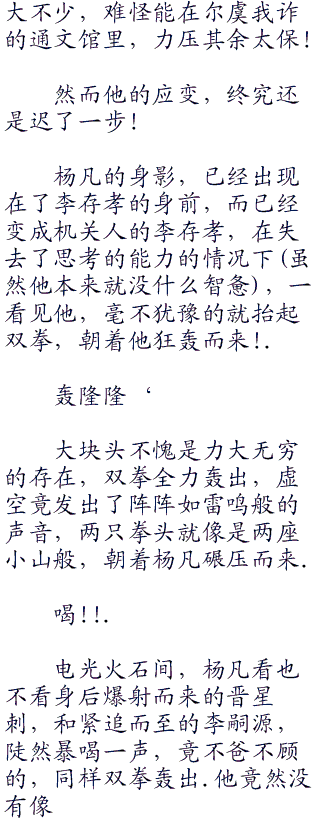 大不少，难怪能在尔虞我诈
的通文馆里，力压其余太保!
然而他的应变，终究还
是迟了一步!
杨凡的身影，已经出现
在了李存孝的身前，而已经
变成机关人的李存孝，在失
去了思考的能力的情况下(虽
然他本来就没什么智惫)，一
看见他，毫不犹豫的就抬起
双拳，朝着他狂轰而来!.
轰隆隆‘
大块头不愧是力大无穷
的存在，双拳全力轰出，虚
空竟发出了阵阵如雷鸣般的
声音，两只拳头就像是两座
小山般，朝着杨凡碾压而来.
喝!!.
电光火石间，杨凡看也
不看身后爆射而来的晋星
刺，和紧追而至的李嗣源，
陡然暴喝一声，竟不爸不顾
的，同样双拳轰出.他竟然没
有像